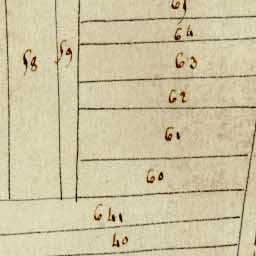 65
64
63
58 59
62
61
60
641
40